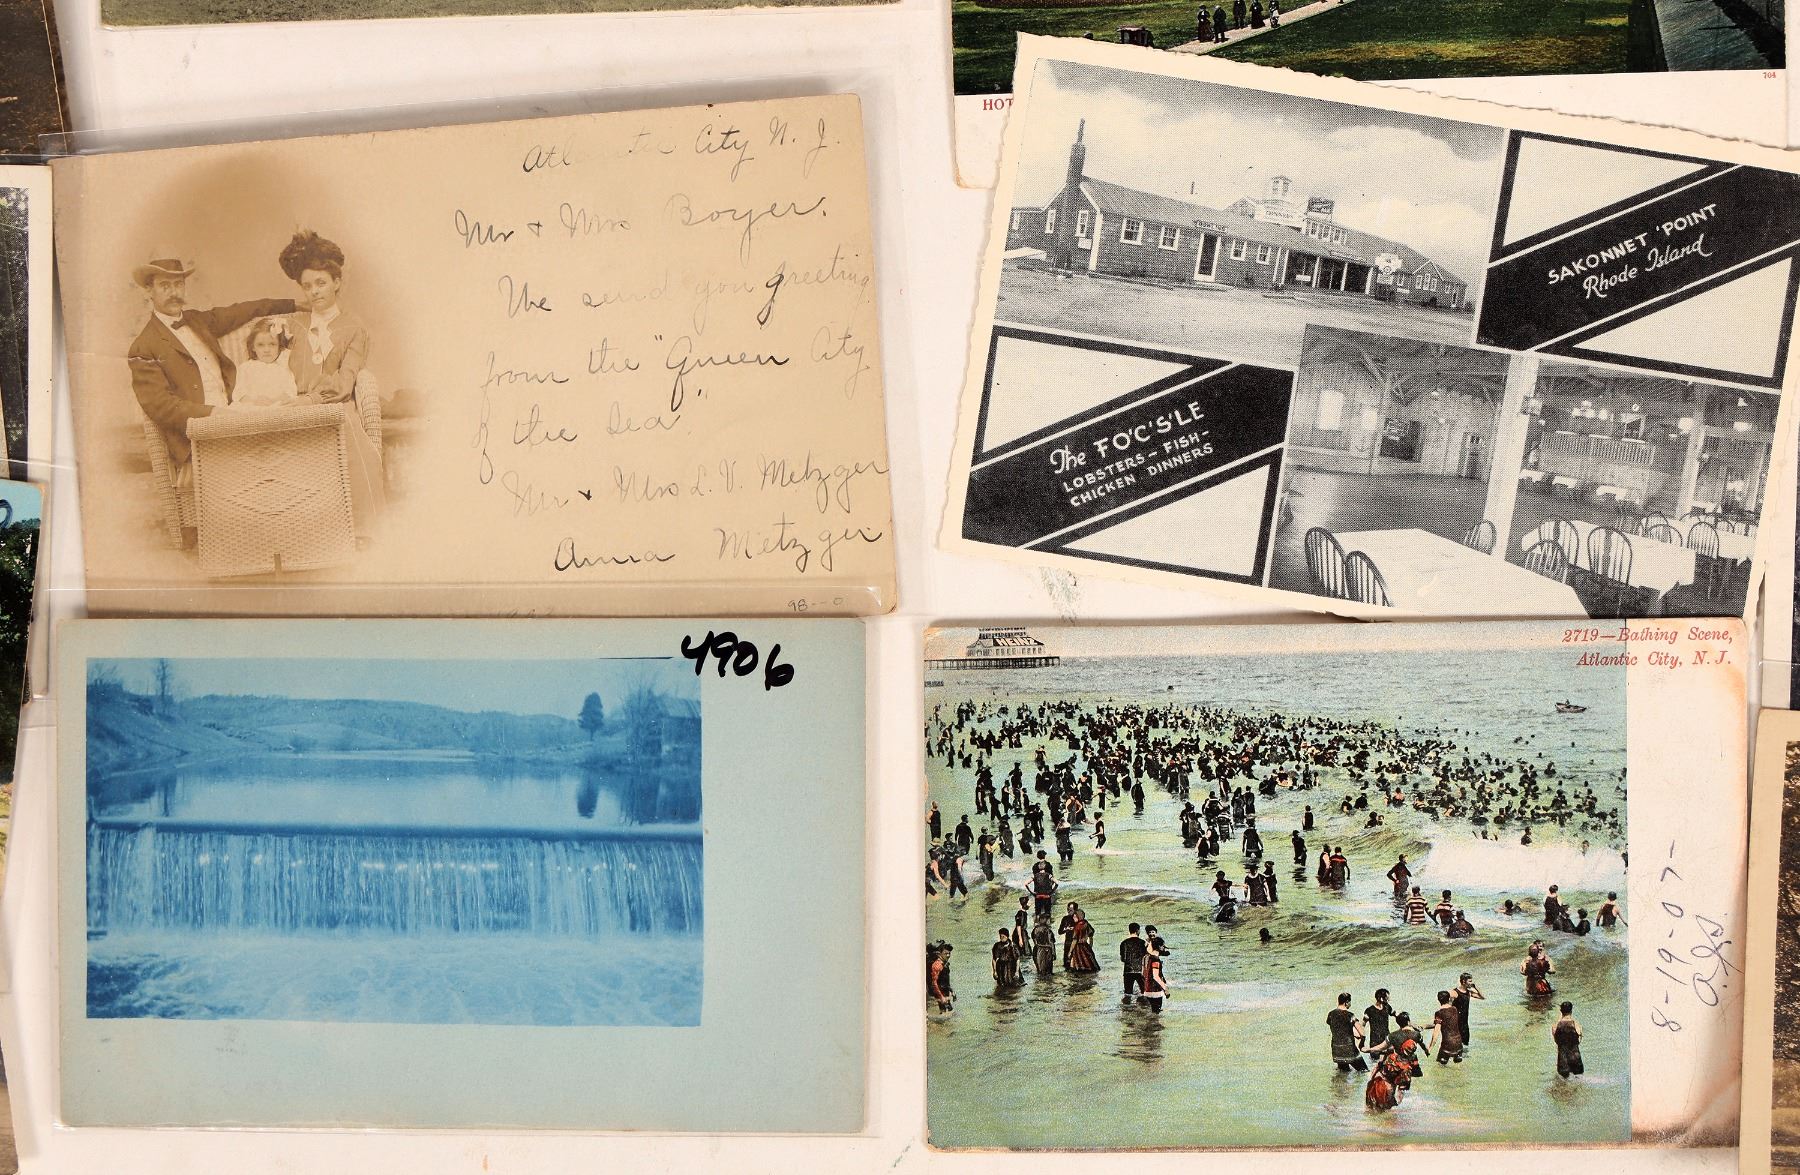 Atlantic City N. J.
Mr & Mrs Boyer.
We send you greeting
from the "Queen City
of the Sea"
Mr & Mrs L. V. Metzger
Anna Metzger
98--0
704
HOT
SAKONNET 'POINT
Rhode Island
The FO'C'S'LE
LOBSTERS - FISH -
CHICKEN DINNERS
4906
HEINZ
2719—Bathing Scene,
Atlantic City, N. J.
8-19-07-